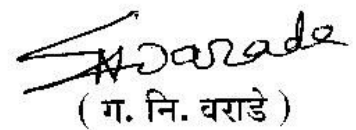 ( ग. नि. वराडे )